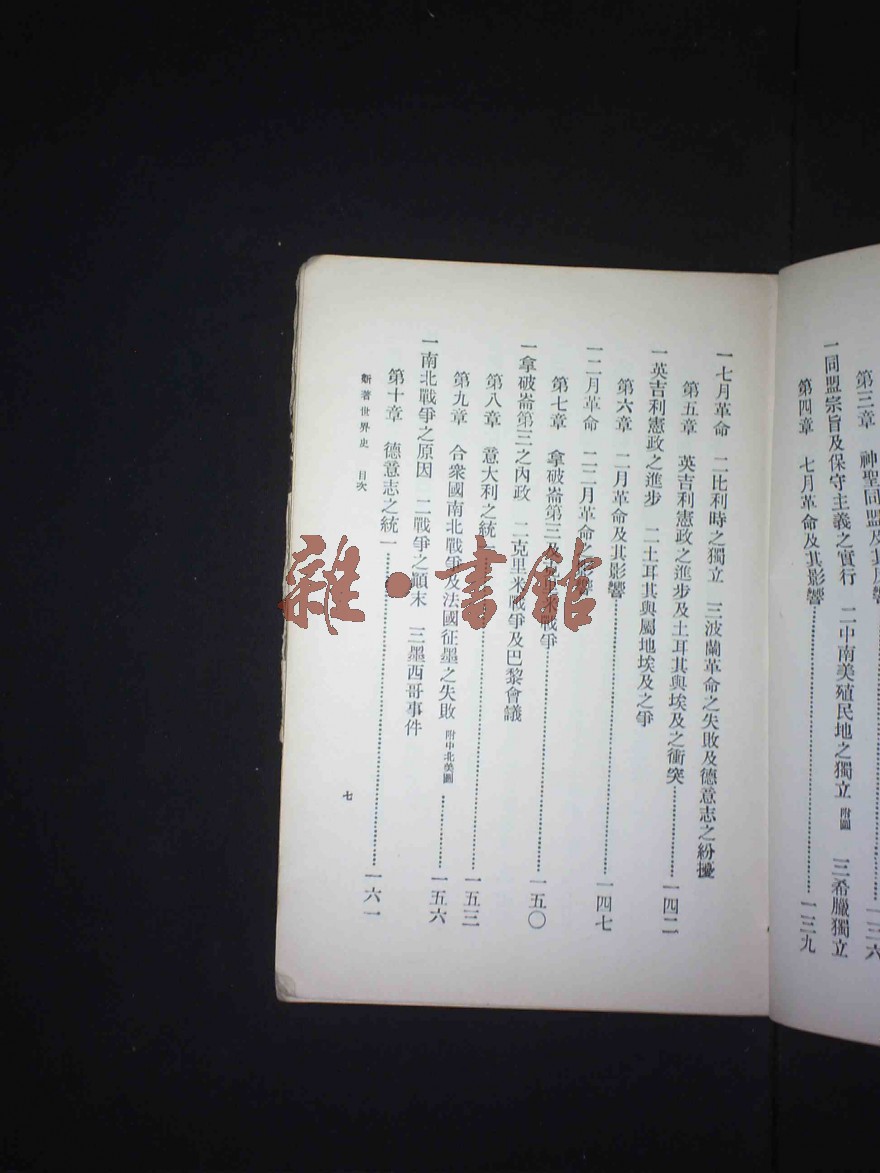 第三章　神聖同盟及其反響……一三六
一同盟宗旨及保守主義之實行　二中南美殖民地之獨立　附圖　三希臘獨立
第四章　七月革命及其影響……一三九
一七月革命　二比利時之獨立　三波蘭革命之失敗及德意志之紛擾
第五章　英吉利憲政之進步及土耳其與埃及之衝突……一四二
一英吉利憲政之進步　二土耳其與屬地埃及之爭
第六章　二月革命及其影響……一四七
一二月革命　二二月革命之
第七章　拿破崙第三及　米戰爭……一五〇
一拿破崙第三之內政　二克里米戰爭及巴黎會議
第八章　意大利之統一……一五三
第九章　合衆國南北戰爭及法國征墨之失敗　附中北美圖……一五六
一南北戰爭之原因　二戰爭之顚末　三墨西哥事件
第十章　德意志之統一……一六一
新著世界史　目次
七
雜·書館